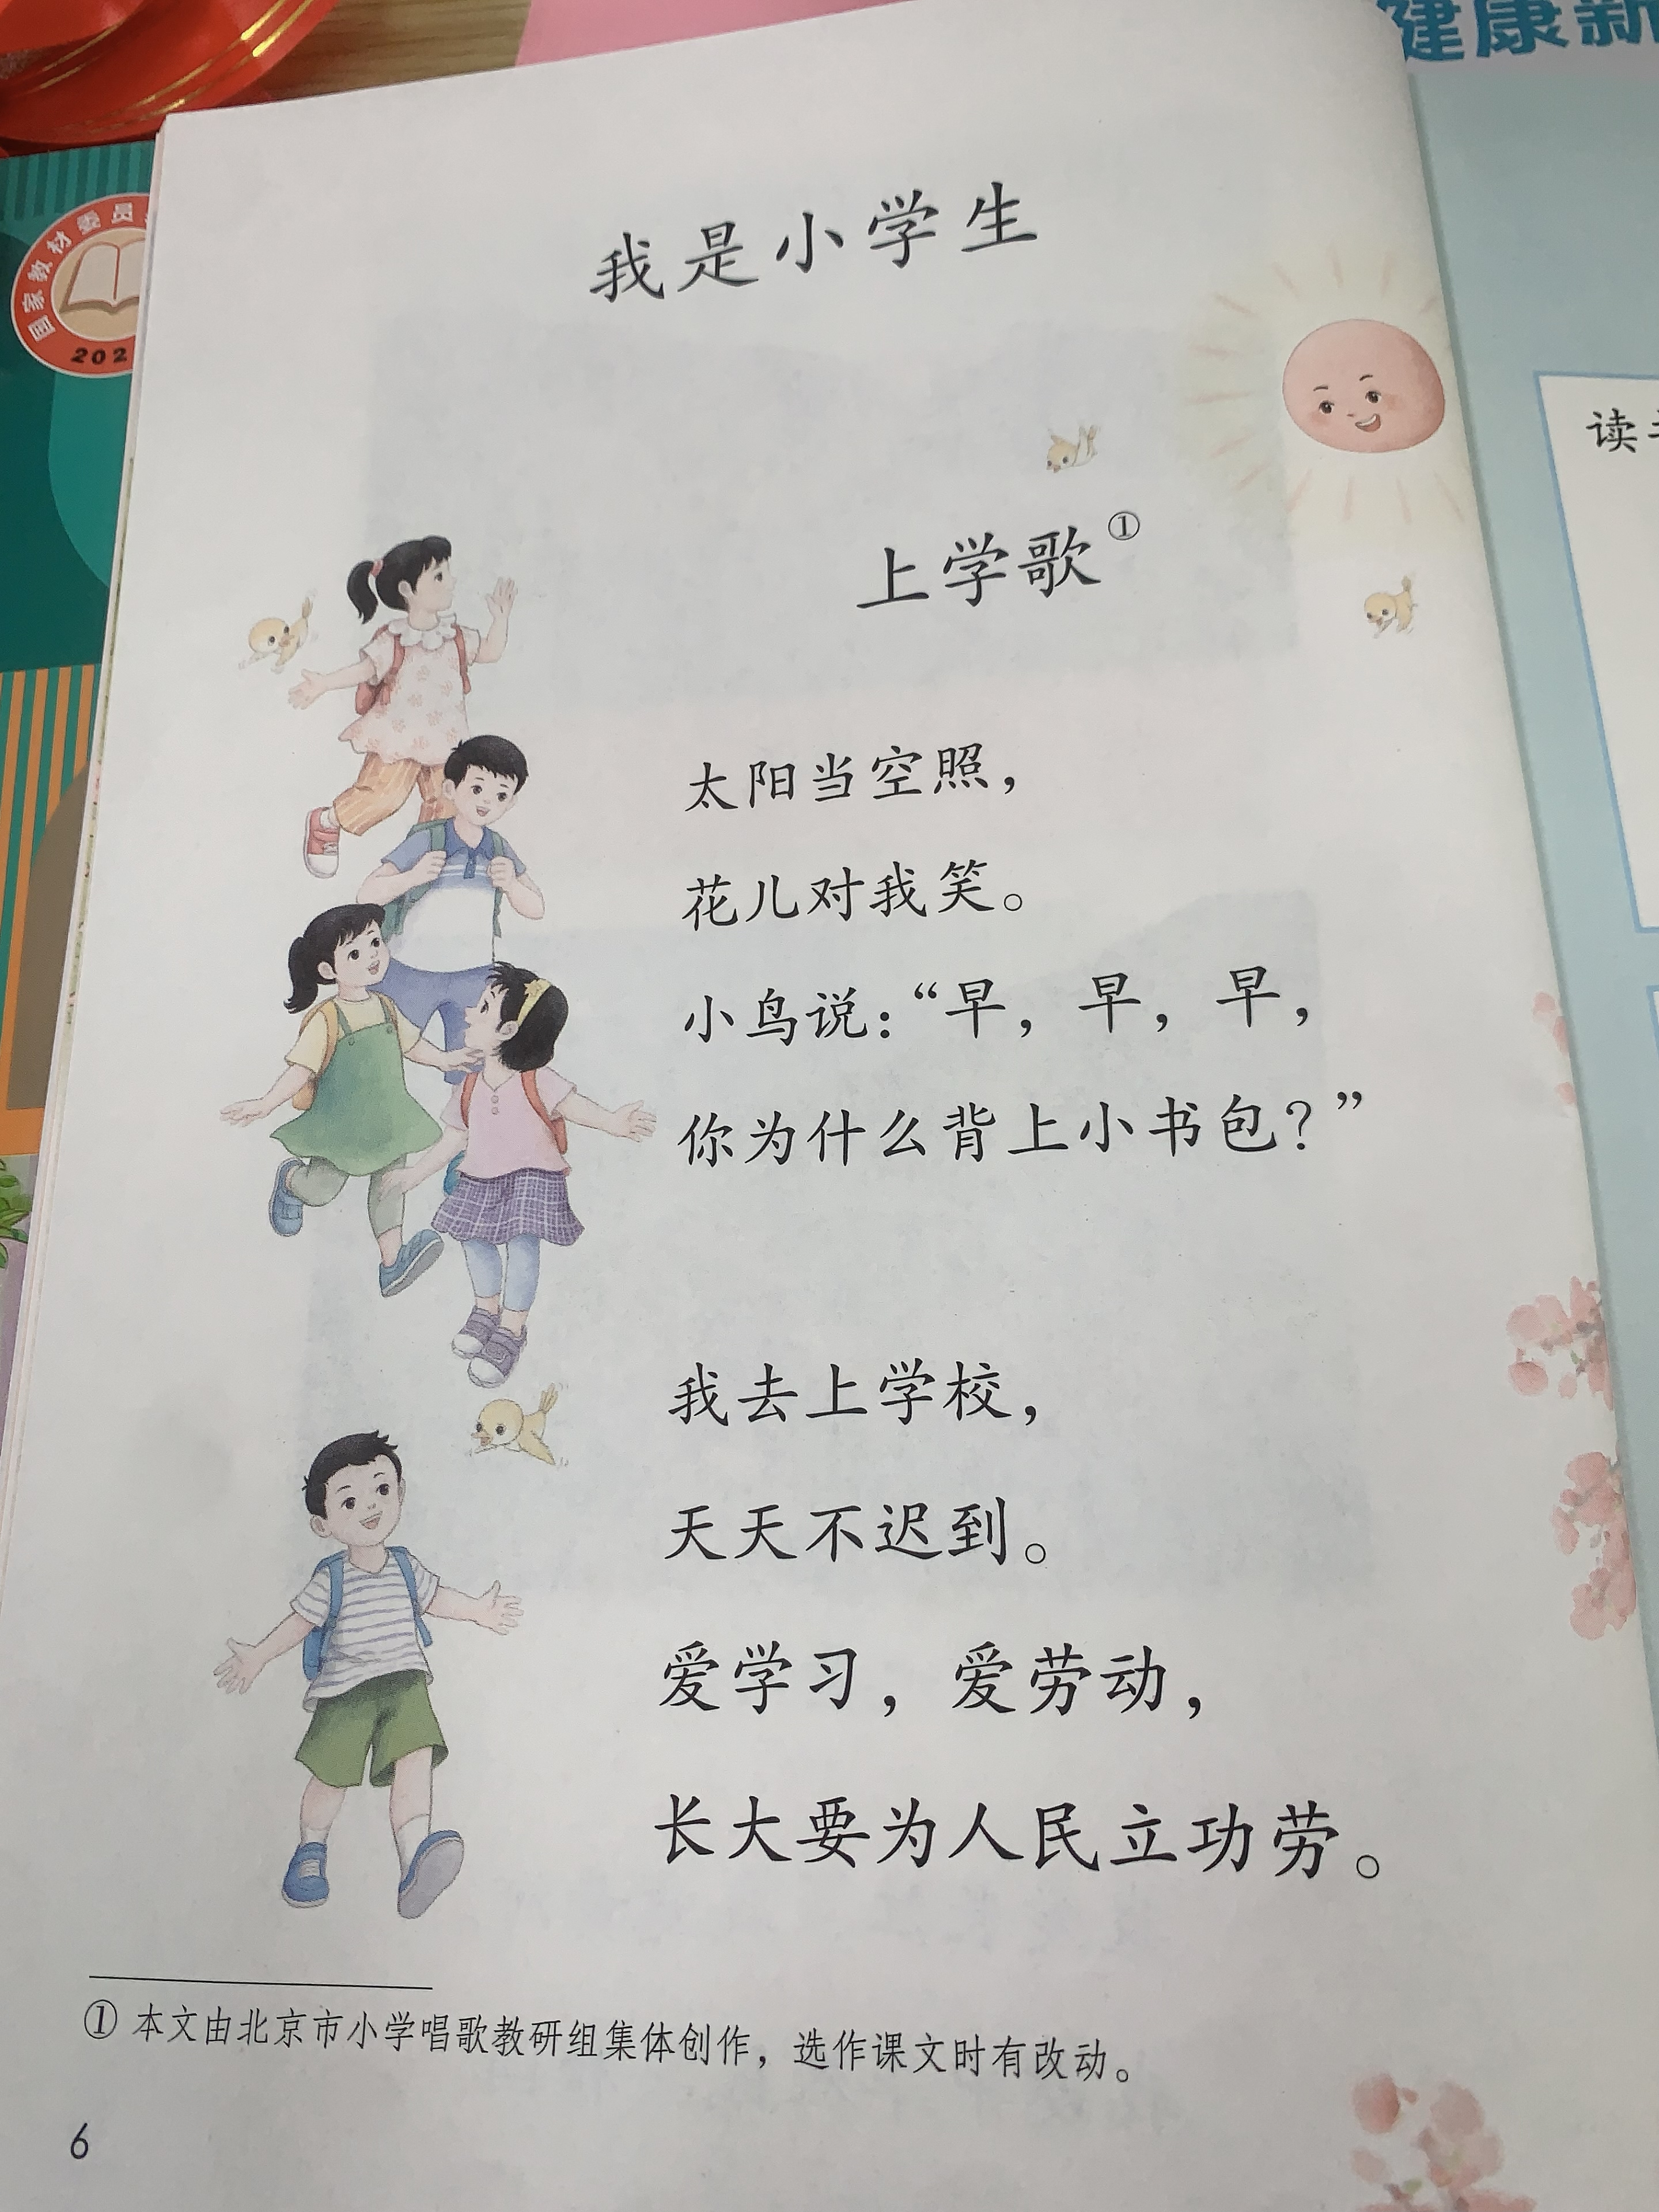 健康新
国家教材委员
202
读
我是小学生
上学歌①
太阳当空照，
花儿对我笑。
小鸟说：“早，早，早，
你为什么背上小书包？”
我去上学校，
天天不迟到。
爱学习，爱劳动，
长大要为人民立功劳。
① 本文由北京市小学唱歌教研组集体创作，选作课文时有改动。
6